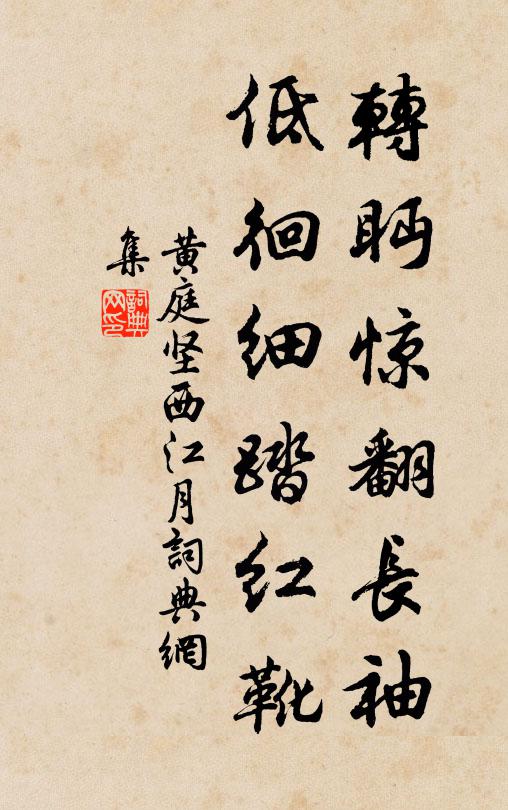 轉眄惊翻長袖
低徊细踏红靴
黄庭坚西江月詞典網
集
詞典
网印